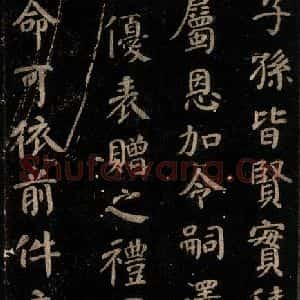 子孫皆賢實
屬恩加令嗣澤
優表贈之禮
命可依前件
Shufawang.Cn